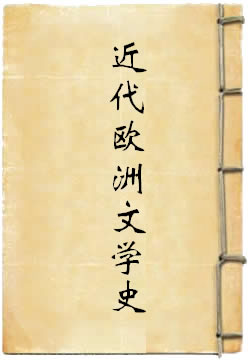 近代欧洲文学史